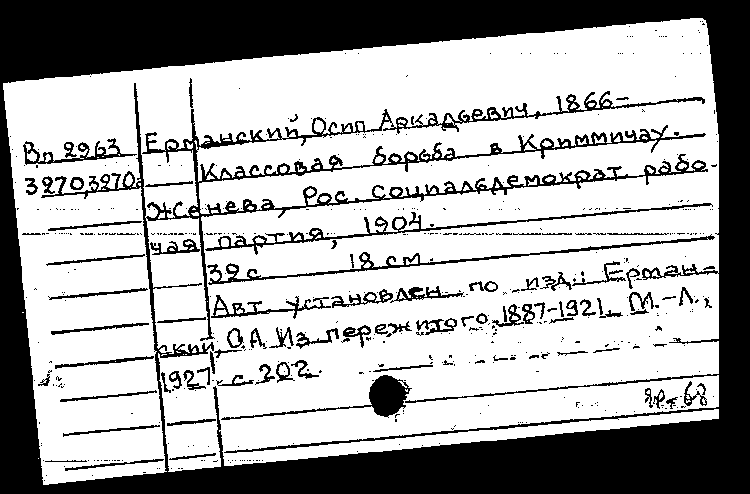 Вп 2963 Ерманский, Осип Аркадьевич, 1866-
3270,3270а Классовая борьба в Криммичау.
Женева, Рос. социальдемократ. рабо-
чая партия, 1904.
32 с 18 см.
Авт. установлен по изд.: Ерман-
ский, О.А. Из пережитого. 1887-1921. М.-Л.,
1927, с. 202.
68